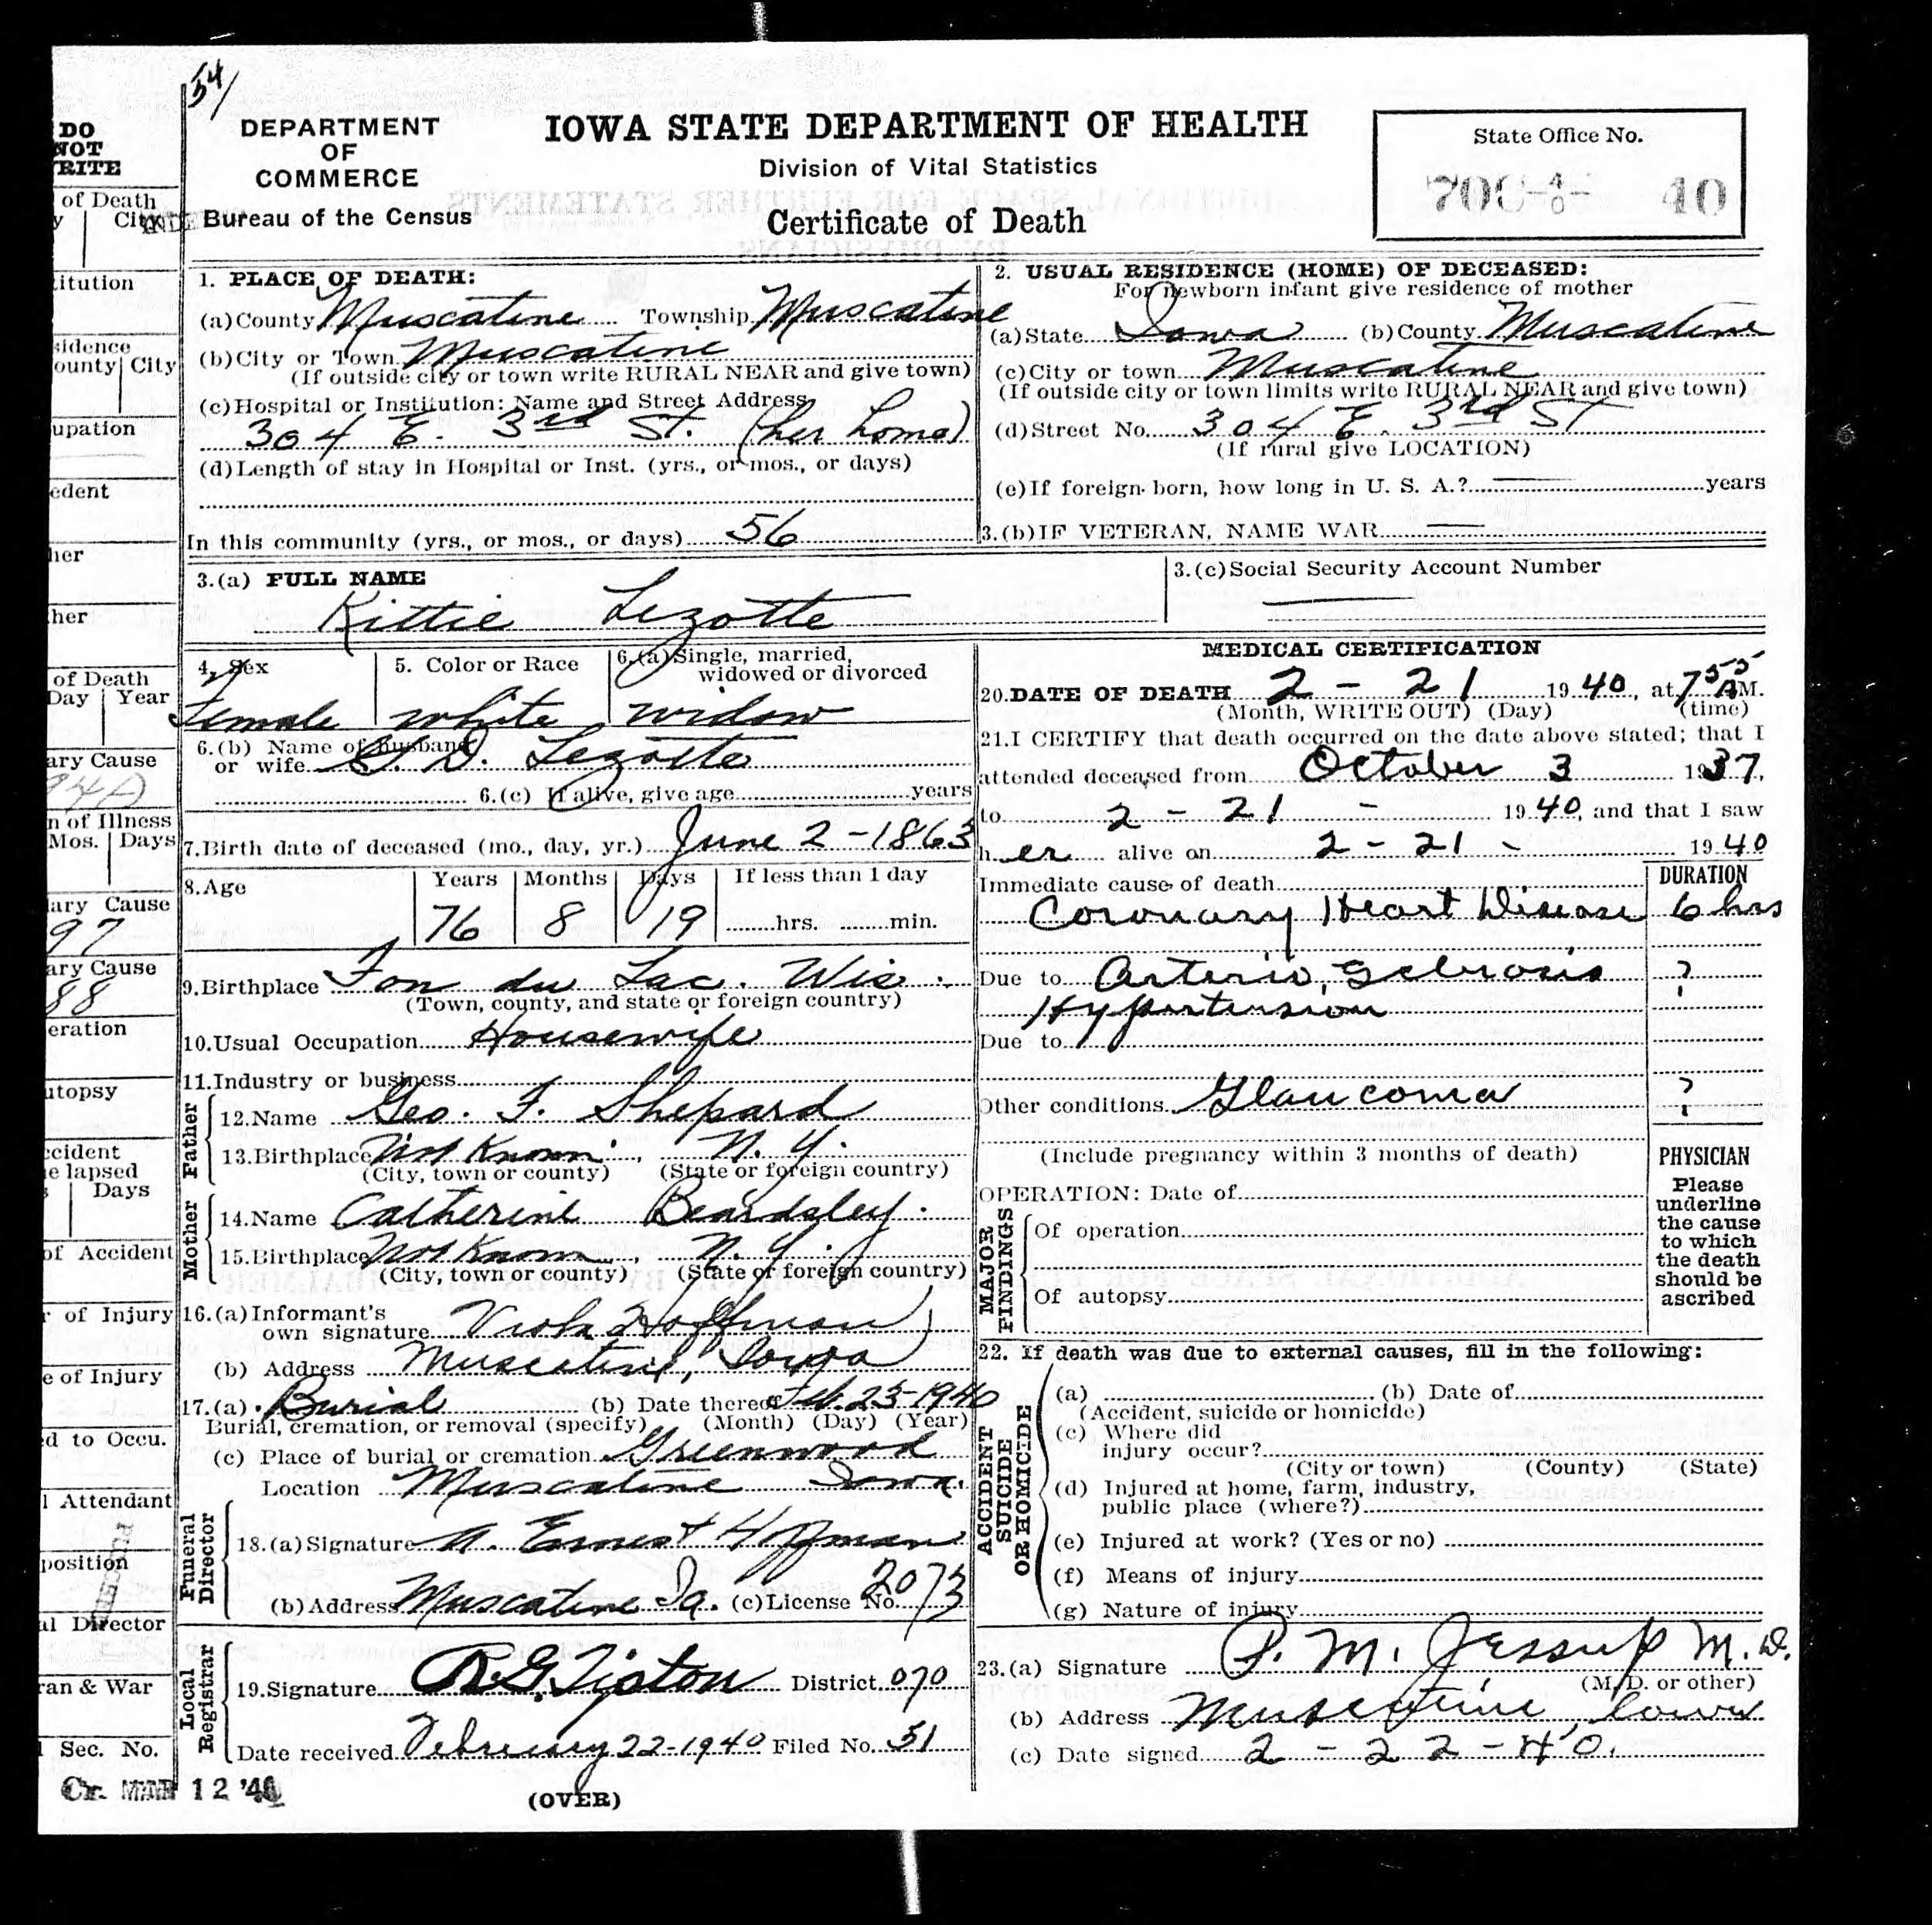 54/
DO
NOT
RITE
of Death
City
titution
sidence
ounty City
upation
edent
her
her
of Death
Day Year
ary Cause
94A
n of Illness
Mos. Days
ary Cause
97
ary Cause
88
eration
utopsy
ccident
e lapsed
Days
of Accident
r of Injury
e of Injury
ed to Occu.
l Attendant
position
al Director
ran & War
Sec. No.
DEPARTMENT
OF
COMMERCE
Bureau of the Census
IOWA STATE DEPARTMENT OF HEALTH
Division of Vital Statistics
Certificate of Death
State Office No.
40
1. PLACE OF DEATH:
(a) County Muscatine Township Muscatine
(b) City or Town Muscatine
(If outside city or town write RURAL NEAR and give town)
(c) Hospital or Institution: Name and Street Address
304 E. 3rd St. (her home)
(d) Length of stay in Hospital or Inst. (yrs., or mos., or days)
In this community (yrs., or mos., or days) 56
2. USUAL RESIDENCE (HOME) OF DECEASED:
For newborn infant give residence of mother
(a) State Iowa (b) County Muscatine
(c) City or town Muscatine
(If outside city or town limits write RURAL NEAR and give town)
(d) Street No. 304 E. 3rd St
(If rural give LOCATION)
(e) If foreign born, how long in U. S. A.? years
3.(b) IF VETERAN, NAME WAR
3.(a) FULL NAME
Kittie Lezotte
3.(c) Social Security Account Number
4. Sex
Female
5. Color or Race
white
6.(a) Single, married,
widowed or divorced
widow
6.(b) Name of husband
or wife G. D. Lezotte
6.(c) If alive, give age years
7. Birth date of deceased (mo., day, yr.) June 2-1863
8. Age Years Months Days If less than 1 day
76 8 19 hrs. min.
9. Birthplace Fon du Lac. Wis.
(Town, county, and state or foreign country)
10. Usual Occupation Housewife
11. Industry or business
Father
12. Name Geo. F. Shepard
13. Birthplace Not Known, N.Y.
(City, town or county) (State or foreign country)
Mother
14. Name Catherine Beardsley.
15. Birthplace Not Known, N.Y.
(City, town or county) (State or foreign country)
16.(a) Informant's
own signature Viola Hoffman
(b) Address Muscatine, Iowa
17.(a) Burial (b) Date thereof Feb. 23-1940
Burial, cremation, or removal (specify) (Month) (Day) (Year)
(c) Place of burial or cremation Greenwood
Location Muscatine Iowa.
Funeral
Director
18.(a) Signature A. Ernest Hoffman
(b) Address Muscatine Ia. (c) License No. 2073
Local
Registrar
19. Signature R.G. Tipton District 070
Date received February 22-1940 Filed No. 51
MEDICAL CERTIFICATION
20. DATE OF DEATH 2 - 21 1940, at 7 55 AM.
(Month, WRITE OUT) (Day) (time)
21. I CERTIFY that death occurred on the date above stated; that I
attended deceased from October 3 1937,
to 2 - 21 - 1940, and that I saw
her alive on 2 - 21 - 1940
Immediate cause of death DURATION
Coronary Heart Disease 6 hrs
Due to Arterio, Sclerosis ?
Hypertension
Due to
Other conditions Glaucoma ?
(Include pregnancy within 3 months of death)
OPERATION: Date of
MAJOR
FINDINGS
Of operation
Of autopsy
PHYSICIAN
Please
underline
the cause
to which
the death
should be
ascribed
22. If death was due to external causes, fill in the following:
ACCIDENT
SUICIDE
OR HOMICIDE
(a) (b) Date of
(Accident, suicide or homicide)
(c) Where did
injury occur?
(City or town) (County) (State)
(d) Injured at home, farm, industry,
public place (where?)
(e) Injured at work? (Yes or no)
(f) Means of injury
(g) Nature of injury
23.(a) Signature P. M. Jessup M.D.
(M. D. or other)
(b) Address Muscatine, Iowa
(c) Date signed 2 - 22 - 40.
Cr. MAR 12 '40
(OVER)